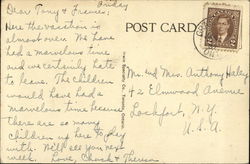 Friday
Dear Tony & Frances;
Here the vacation is
almost over. We have
had a marvelous time
and we certainly hate
to leave. The children
would have had a
marvelous time because
there are so many
children up here to play
with. Will see you next
week. Love, Chuck & Theresa
POST CARD
Mr. and Mrs. Anthony Haley
42 Elmwood Avenue
Lockport, N.Y.
U.S.A.